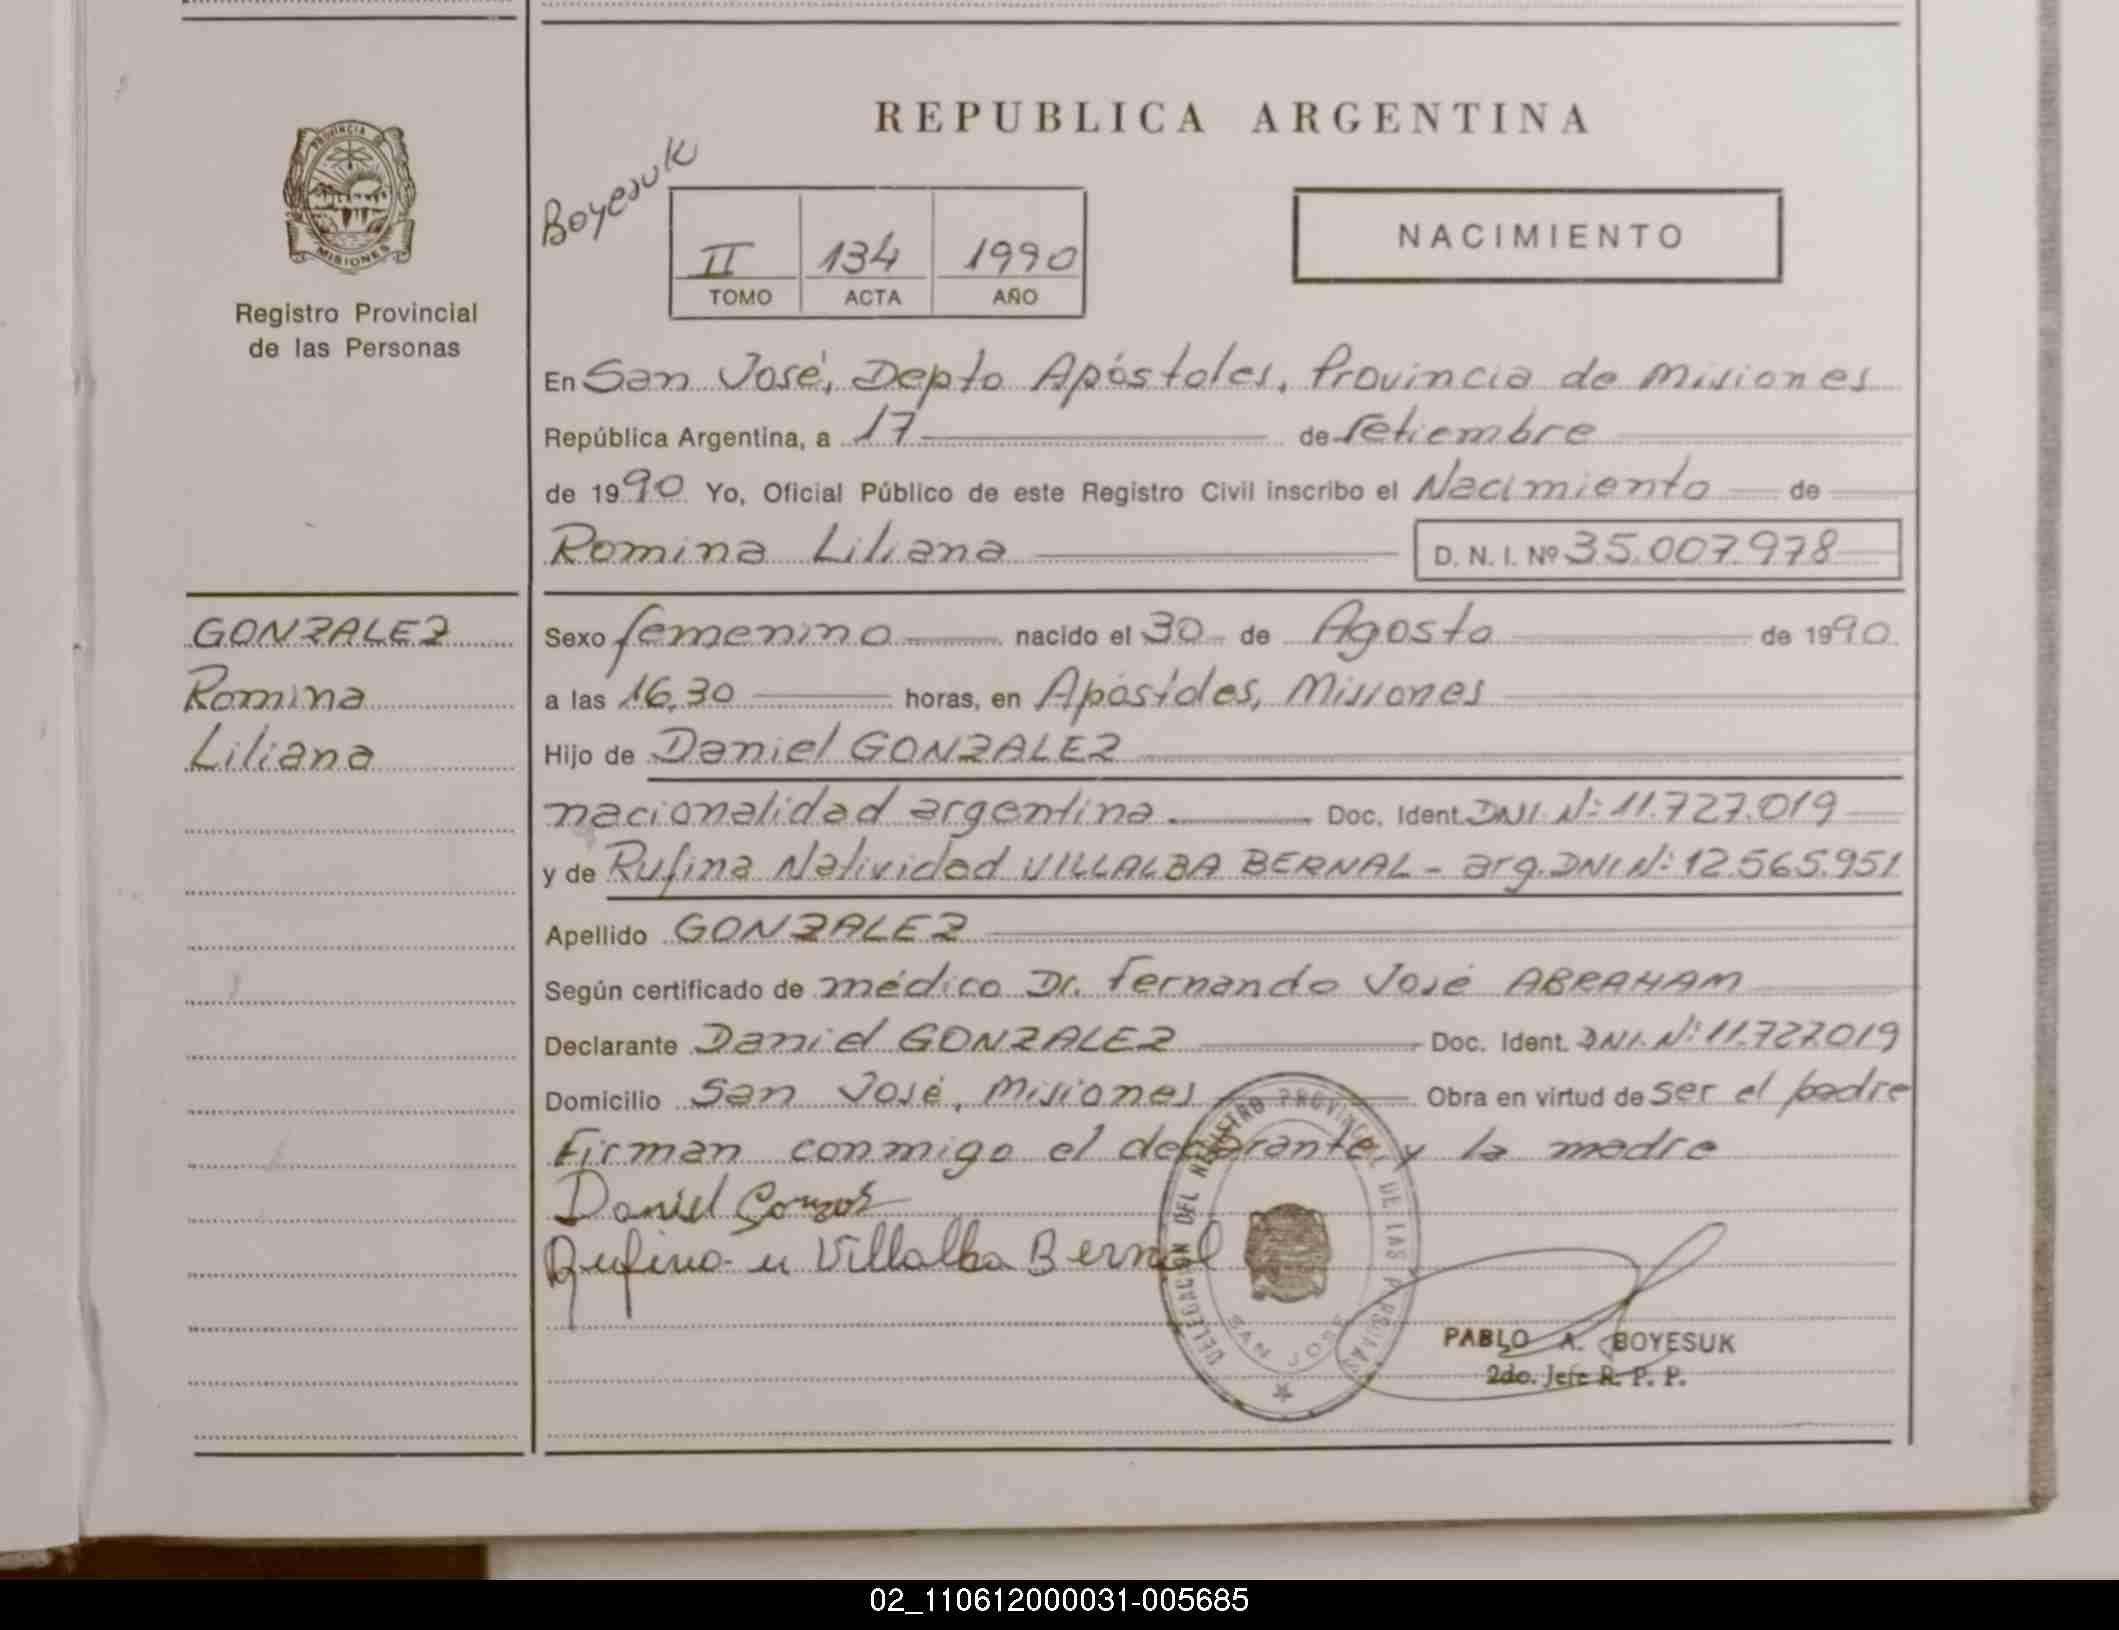 REPUBLICA ARGENTINA
PROVINCIA DE
MISIONES
Registro Provincial
de las Personas
Boyesuk
II 134 1990
TOMO ACTA AÑO
NACIMIENTO
En San José, Depto Apóstoles, Provincia de Misiones
República Argentina, a 17 de setiembre
de 1990 Yo, Oficial Público de este Registro Civil inscribo el Nacimiento de
Romina Liliana D. N. I. Nº 35.007.978
GONZALEZ
Romina
Liliana
Sexo femenino nacido el 30 de Agosto de 1990
a las 16,30 horas, en Apóstoles, Misiones
Hijo de Daniel GONZALEZ
nacionalidad argentina. Doc. Ident. DNI. Nº: 11.727.019
y de Rufina Natividad VILLALBA BERNAL - arg. DNI Nº: 12.565.951
Apellido GONZALEZ
Según certificado de médico Dr. Fernando José ABRAHAM
Declarante Daniel GONZALEZ Doc. Ident. DNI. Nº: 11.727.019
Domicilio San José, Misiones Obra en virtud de ser el padre
Firman conmigo el declarante y la madre
Daniel
Rufina N Villalba Bernal
DELEGACION DEL REGISTRO PROVINCIAL DE LAS PERSONAS
SAN JOSE
PABLO A. BOYESUK
2do. Jefe R. P. P.
02_110612000031-005685